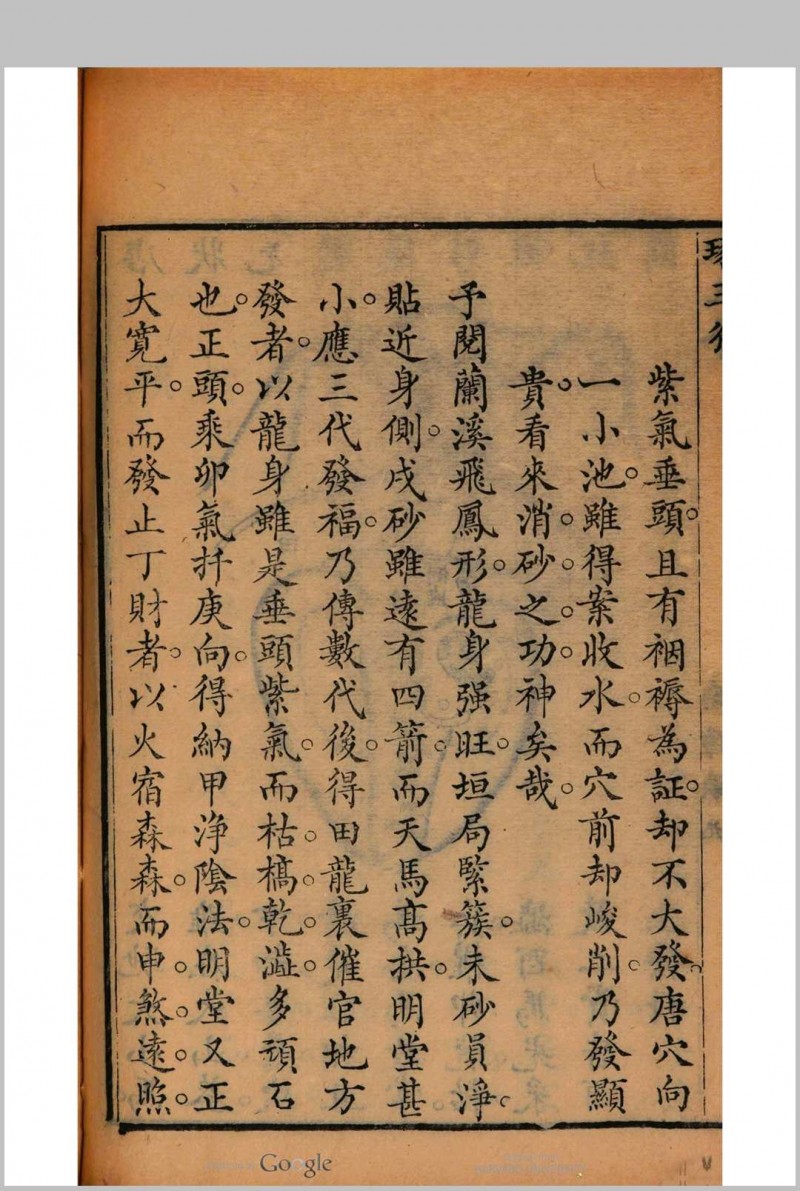 紫氣垂頭。且有裀褥為証。却不大發。唐穴向
一小池。雖得案收水。而穴前却峻削。乃發顯
貴。看來消。砂。之。功。神矣哉。
予閱蘭溪飛鳳形。龍身强旺。垣局緊簇。未砂員淨。
貼近身側。戌砂雖遠有四箭。而天馬髙拱。明堂甚
小。應三代發福。乃傳數代後。得田龍裏催官地方
發者。以龍身雖是垂頭紫氣。而枯。槁。乾。澁。多頑石
也。正頭。乘卯氣扦庚向。得納甲淨陰法。明堂又正
大寛平。而發止丁財者。以火宿森森。而申。煞。遠。照。
Google